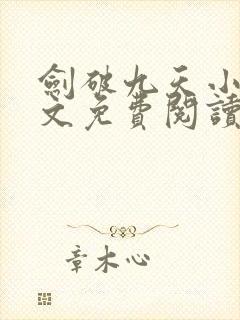 劍破九天小
文免費閱讀
章木心